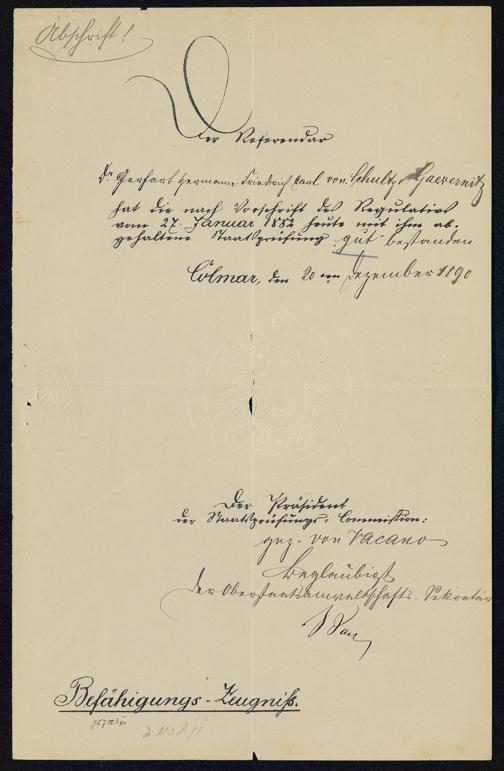 Abschrift!
Der Referendar
Dr Gerhart Hermann Friedrich Carl von Schultz Gaevernitz
hat die nach Vorschrift des Regulativs
vom 27. Januar 1882 heute mit ihm ab-
gehaltene Staatsprüfung „gut" bestanden
Colmar, den 20ten Dezember 1890
Der Präsident
der Staatsprüfungs-Commission:
gez. von Vacano
Beglaubigt
Der Oberstaatsanwaltschafts-Sekretär
Befähigungs-Zeugniß.